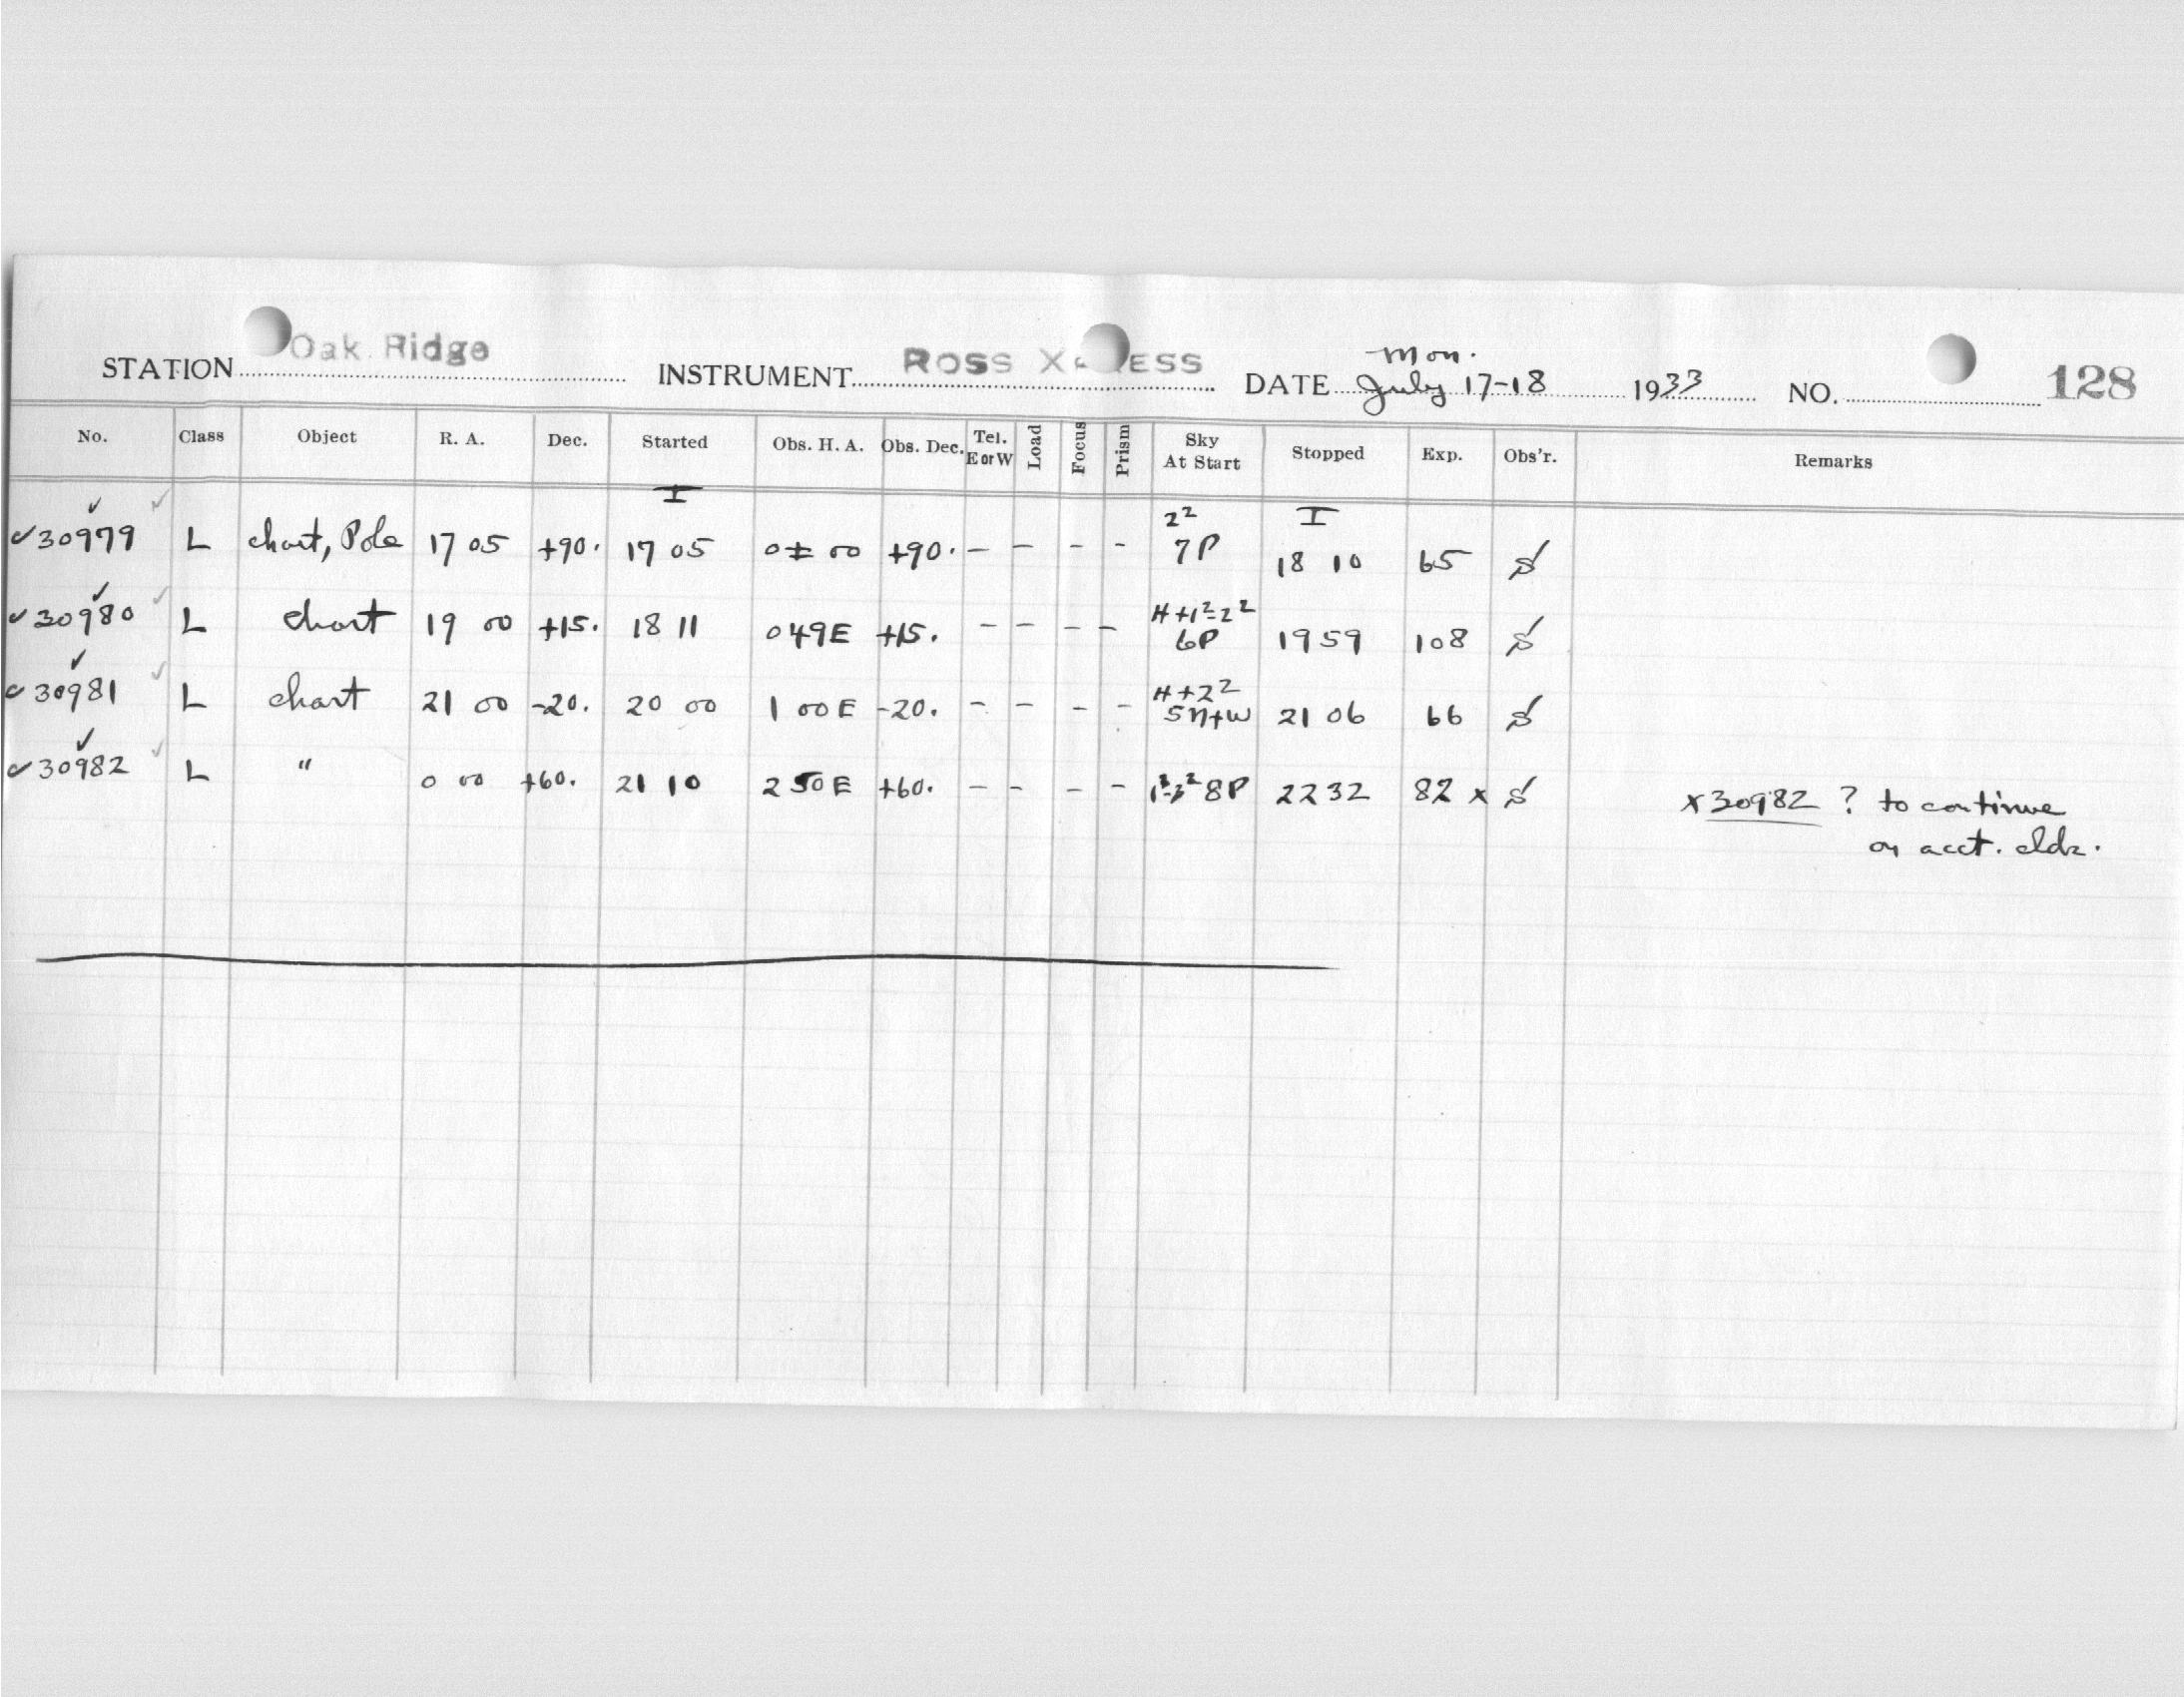 STATION Oak Ridge INSTRUMENT ROSS X ESS DATE Mon. July 17-18 1933 NO. 128
No. Class Object R. A. Dec. Started Obs. H. A. Obs. Dec. Tel. E or W Load Focus Prism Sky At Start Stopped Exp. Obs'r. Remarks
I I
✓30979 L chart, Pole 17 05 +90. 17 05 0± 00 +90. - - - - 2² 7P 18 10 65
✓30980 L chart 19 00 +15. 18 11 0 49E +15. - - - - H+1²-2² 6P 19 59 108
✓30981 L chart 21 00 -20. 20 00 1 00E -20. - - - - H+2² 5n+W 21 06 66
✓30982 L " 0 00 +60. 21 10 2 50E +60. - - - - 8P 22 32 82 x
x30982 ? to continue
on acct. cldz.